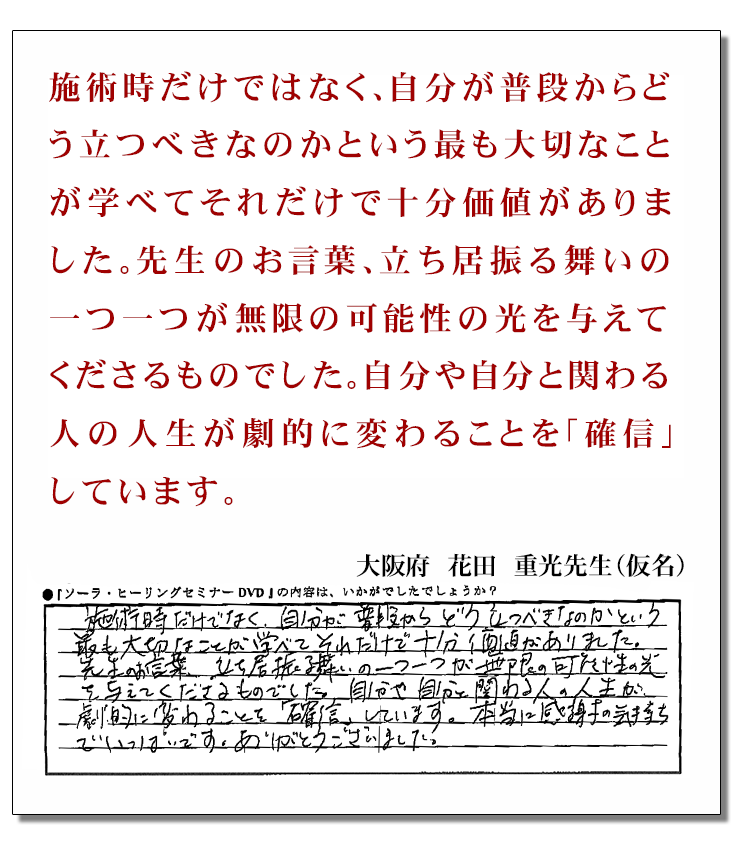 施術時だけではなく、自分が普段からど
う立つべきなのかという最も大切なこと
が学べてそれだけで十分価値がありま
した。先生のお言葉、立ち居振る舞いの
一つ一つが無限の可能性の光を与えて
くださるものでした。自分や自分と関わる
人の人生が劇的に変わることを「確信」
しています。
大阪府 花田 重光先生（仮名）
●『ソーラ・ヒーリングセミナーDVD』の内容は、いかがでしたでしょうか？
施術時だけでなく、自分が普段からどう立つべきなのかという
最も大切なことが学べてそれだけで十分価値がありました。
先生のお言葉、立ち居振る舞いの一つ一つが無限の可能性の光
を与えてくださるものでした。自分や自分と関わる人の人生が、
劇的に変わることを「確信」しています。本当に感謝の気持ち
でいっぱいです。ありがとうございました。